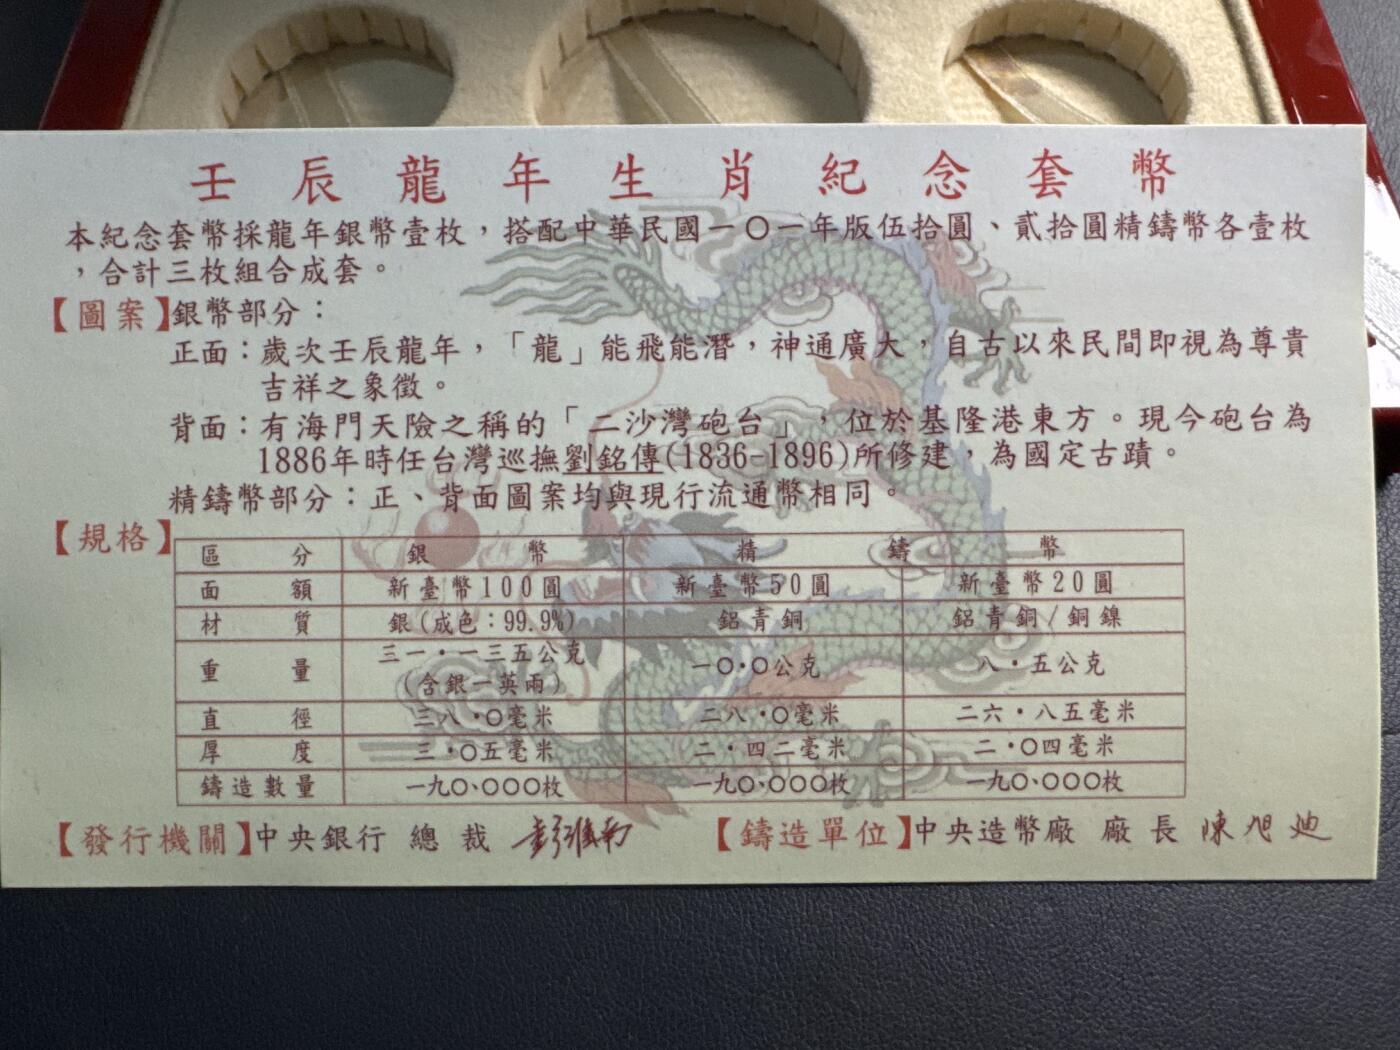 壬辰龍年生肖紀念套幣
本紀念套幣採龍年銀幣壹枚，搭配中華民國一〇一年版伍拾圓、貳拾圓精鑄幣各壹枚
，合計三枚組合成套。
【圖案】銀幣部分：
正面：歲次壬辰龍年，「龍」能飛能潛，神通廣大，自古以來民間即視為尊貴
吉祥之象徵。
背面：有海門天險之稱的「二沙灣砲台」，位於基隆港東方。現今砲台為
1886年時任台灣巡撫劉銘傳(1836-1896)所修建，為國定古蹟。
精鑄幣部分：正、背面圖案均與現行流通幣相同。
【規格】
區分 銀幣 精鑄幣
面額 新臺幣100圓 新臺幣50圓 新臺幣20圓
材質 銀(成色：99.9%) 鋁青銅 鋁青銅/銅鎳
重量 三一・一三五公克 一〇・〇公克 八・五公克
(含銀一英兩)
直徑 三八・〇毫米 二八・〇毫米 二六・八五毫米
厚度 三・〇五毫米 二・四二毫米 二・〇四毫米
鑄造數量 一九〇、〇〇〇枚 一九〇、〇〇〇枚 一九〇、〇〇〇枚
【發行機關】中央銀行 總裁 彭淮南 【鑄造單位】中央造幣廠 廠長 陳旭迪